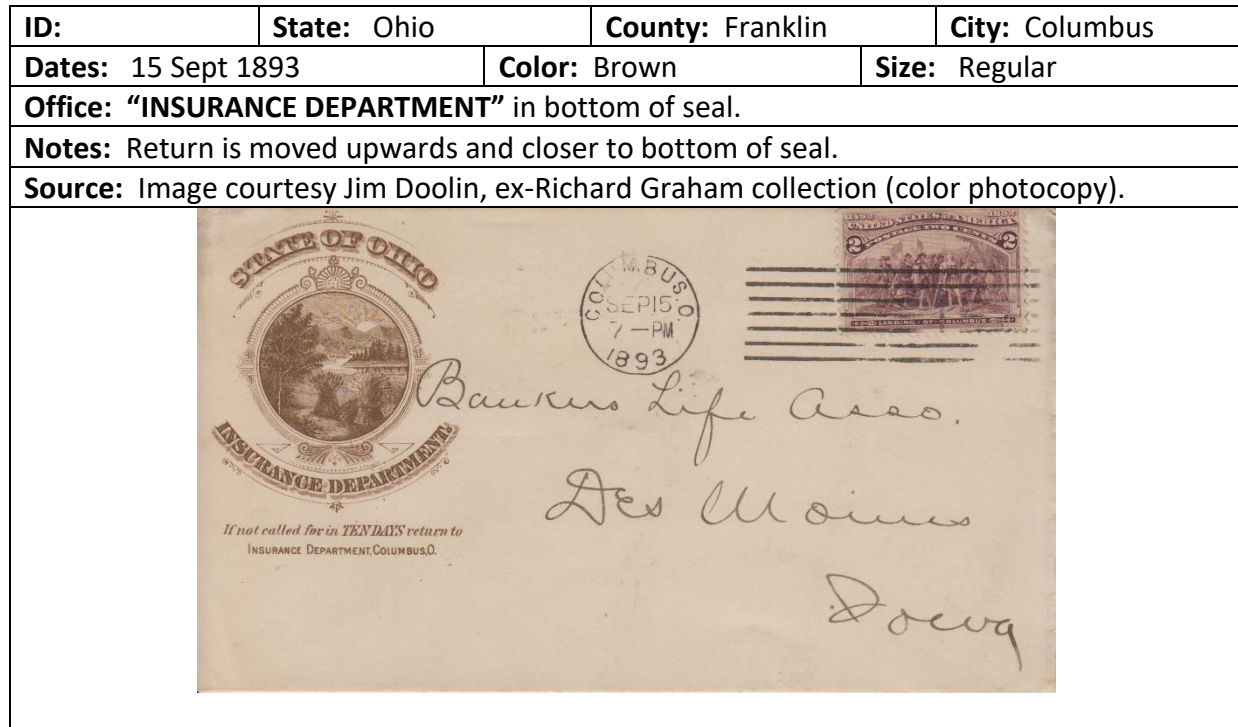 ID: State: Ohio County: Franklin City: Columbus
Dates: 15 Sept 1893 Color: Brown Size: Regular
Office: “INSURANCE DEPARTMENT” in bottom of seal.
Notes: Return is moved upwards and closer to bottom of seal.
Source: Image courtesy Jim Doolin, ex-Richard Graham collection (color photocopy).
STATE OF OHIO
INSURANCE DEPARTMENT.
If not called for in TEN DAYS return to
INSURANCE DEPARTMENT, COLUMBUS, O.
COLUMBUS. O.
SEP 15
7-PM
1893
1492 1892
UNITED STATES OF AMERICA
POSTAGE TWO CENTS
2 2
LANDING OF COLUMBUS
Bankers Life Asso.
Des Moines
Iowa